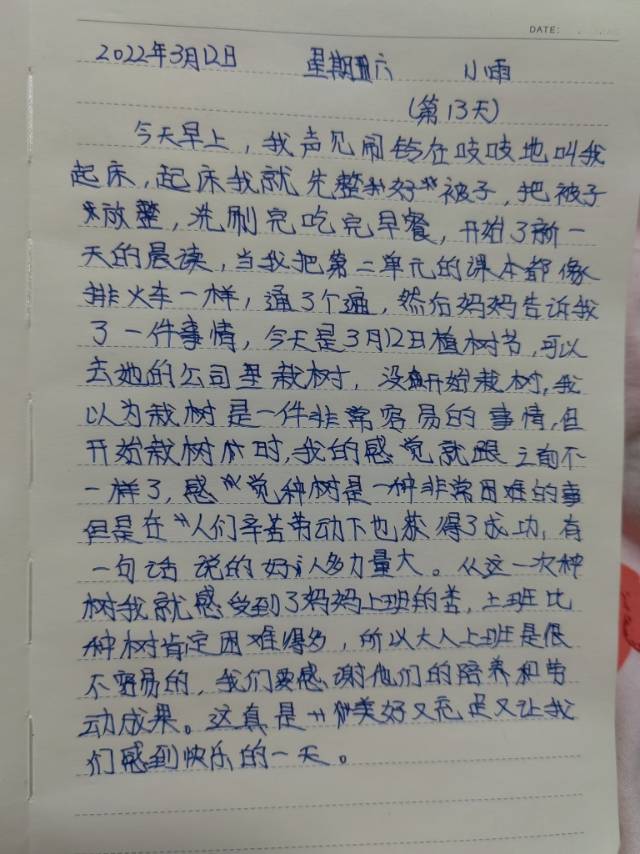 DATE:
2022年3月12日 星期六 小雨
(第13天)
今天早上，我声见闹铃在吱吱地叫我
起床，起床我就先整好被子，把被子
放整，洗刷完吃完早餐，开始了新一
天的晨读，当我把第二单元的课本都像
排火车一样，通了个遍，然后妈妈告诉我
了一件事情，今天是3月12日植树节，可以
去她的公司里栽树，没开始栽树，我
以为栽树是一件非常容易的事情，但
开始栽树时，我的感觉就跟之前不
一样了，感觉种树是一种非常困难的事
但是在人们辛苦劳动下也获得了成功，有
一句话说的好人多力量大。从这一次种
树我就感受到了妈妈上班的苦，上班比
种树肯定困难得多，所以大人上班是很
不容易的，我们要感谢他们的陪养和劳
动成果。这真是个美好又充足又让我
们感到快乐的一天。